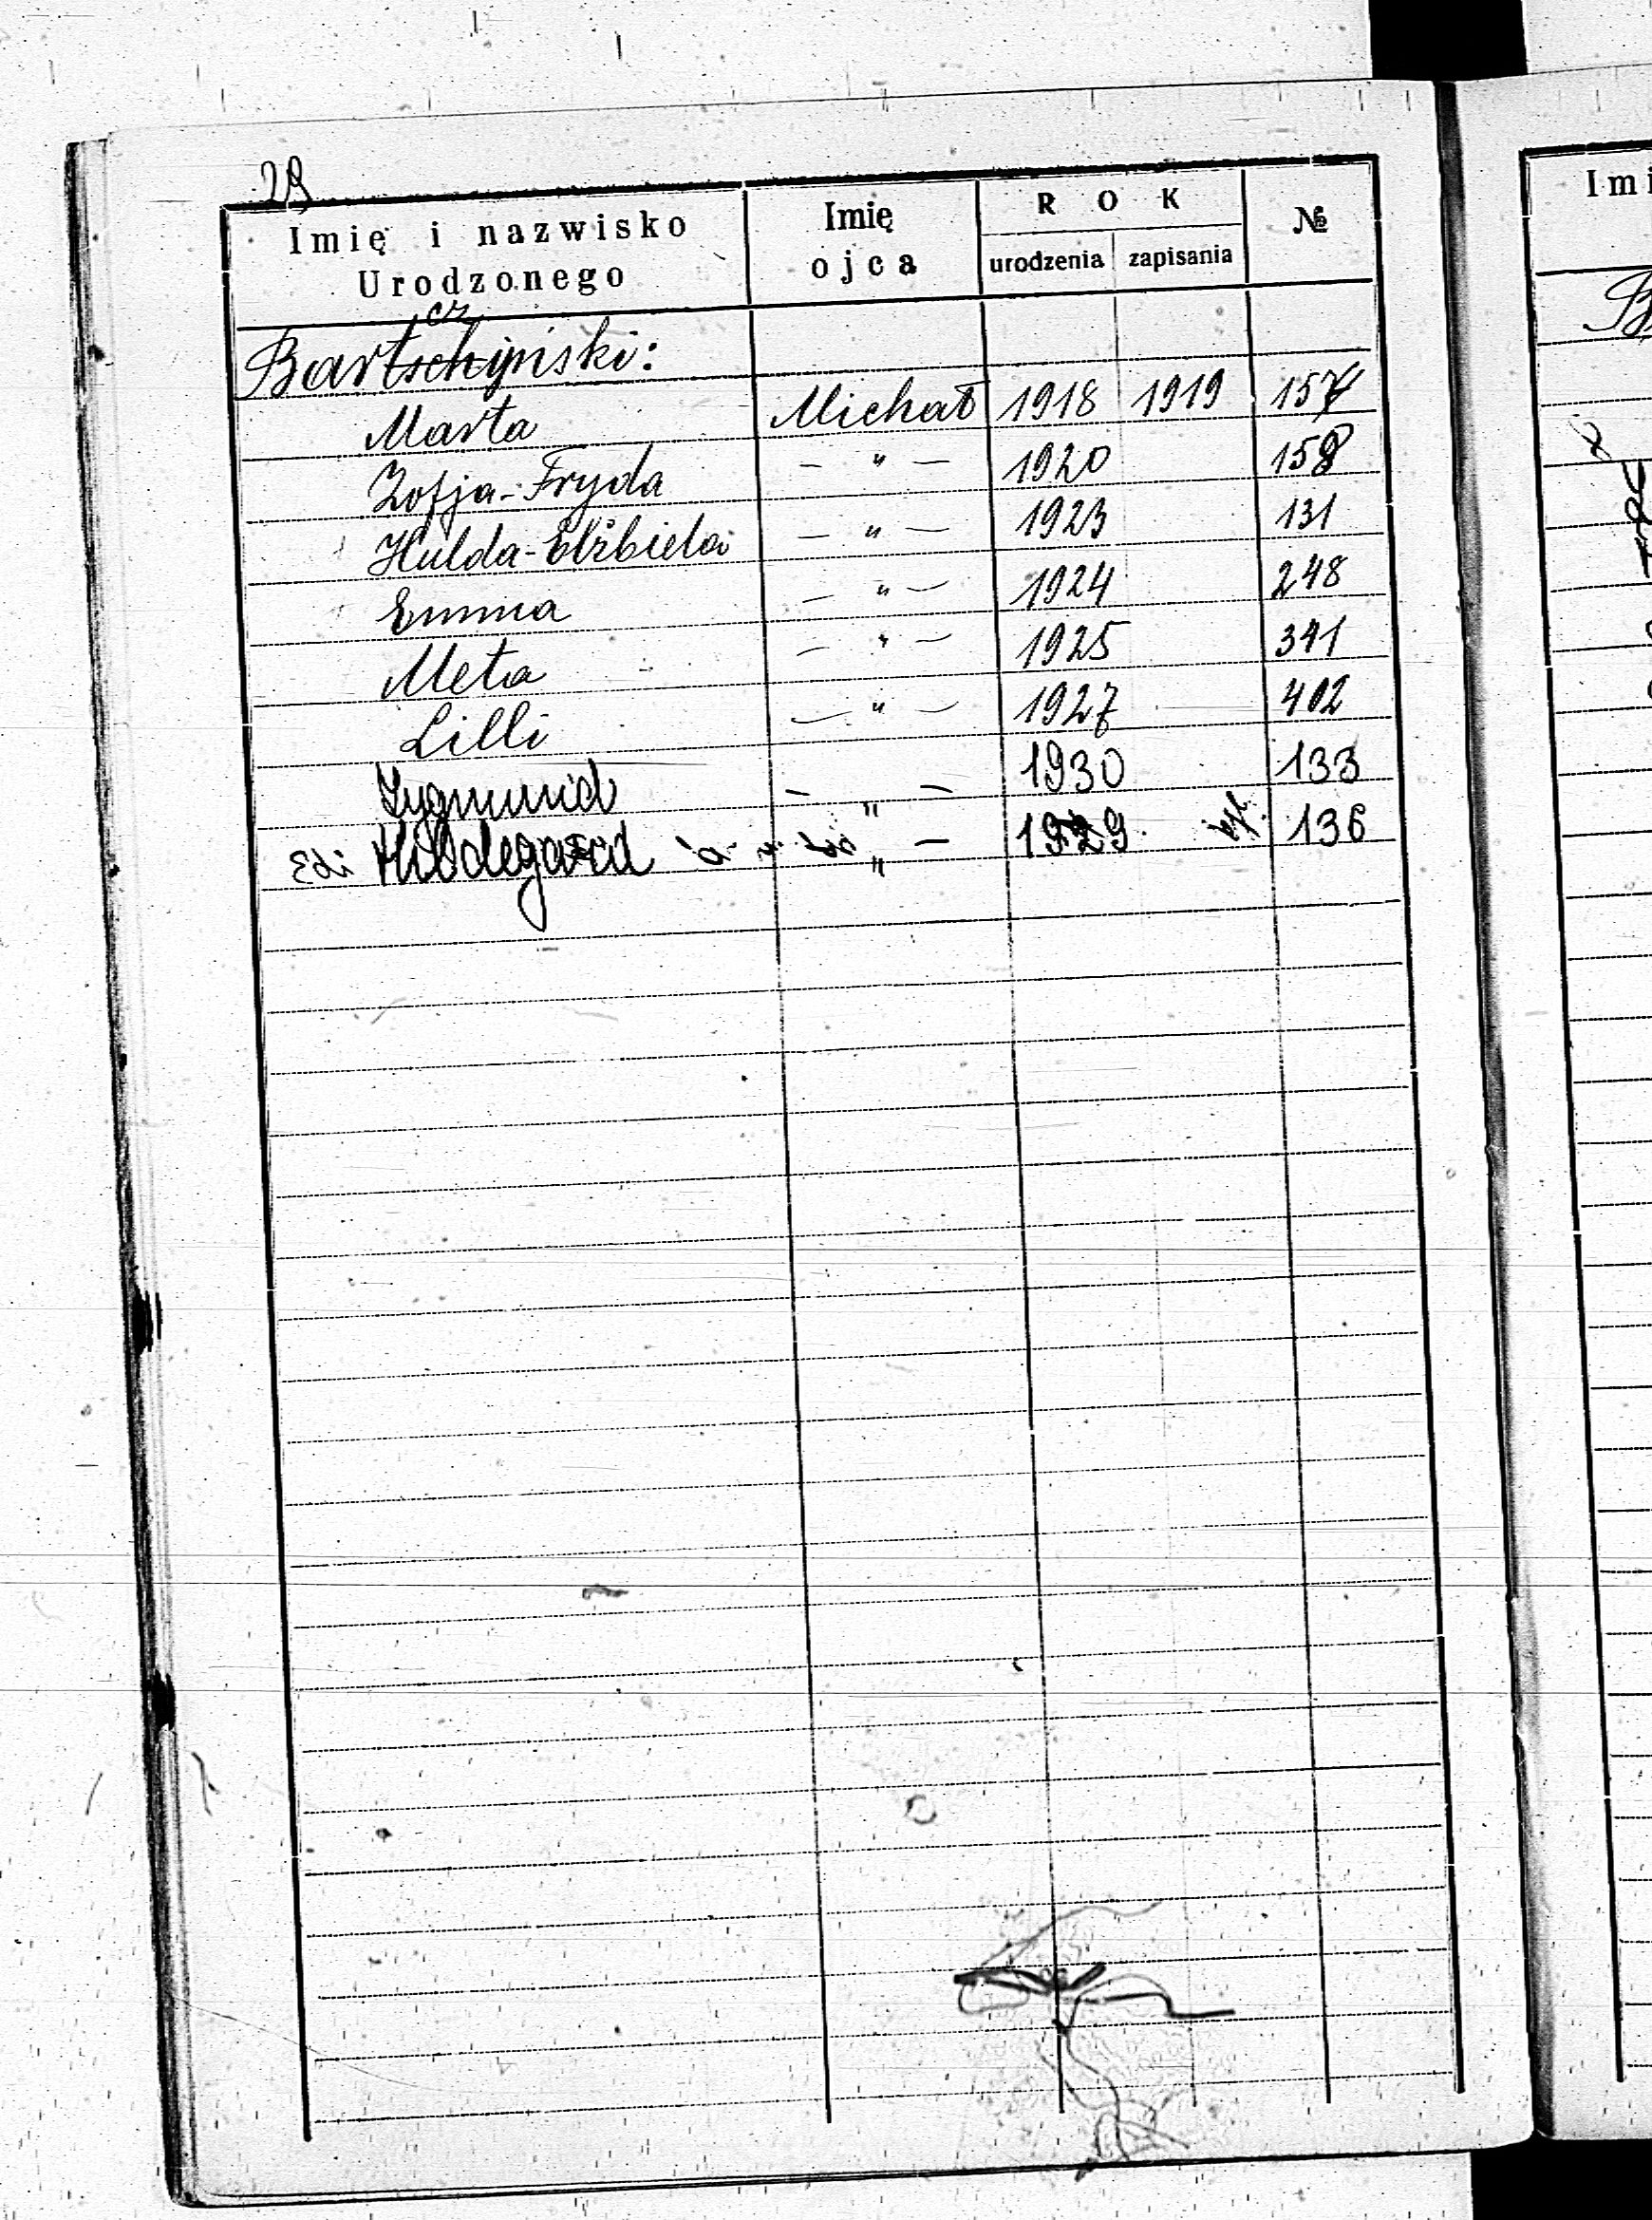 29
Imię i nazwisko Urodzonego Imię ojca ROK urodzenia zapisania №
cz
Bartschiński:
Marta Michał 1918 1919 157
Zofja-Fryda — " — 1920 158
Hulda-Elżbieta — " — 1923 131
Emma — " — 1924 248
Meta — " — 1925 341
Lilli — " — 1927 402
Zygmund — " — 1930 133
Hildegard " — 1929 136
Imi
B